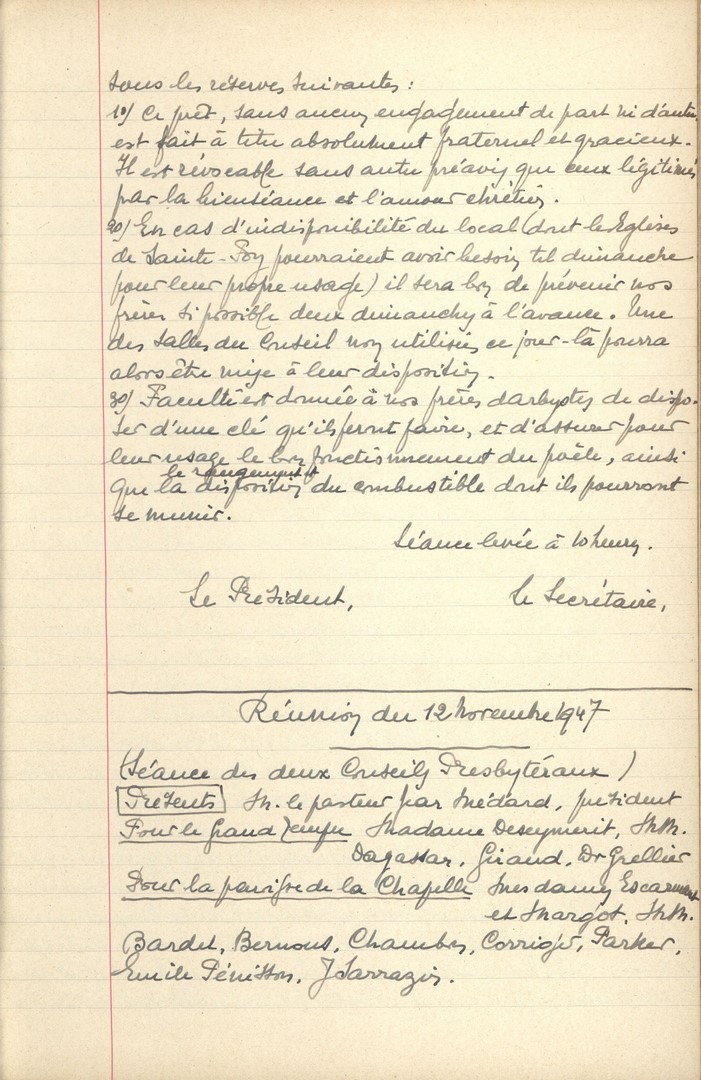 sous les réserves suivantes :
1º/ Ce prêt, sans aucun engagement de part ni d'autre
est fait à titre absolument fraternel et gracieux.
Il est révocable sans autre préavis que ceux légitimés
par la bienséance et l'amour chrétien.
2º/ En cas d'indisponibilité du local (dont les Eglises
de Sainte-Foy pourraient avoir besoin tel dimanche
pour leur propre usage) il sera bon de prévenir nos
frères si possible deux dimanches à l'avance. Une
des salles du Conseil non utilisées ce jour-là pourra
alors être mise à leur disposition.
3º/ Faculté est donnée à nos frères darbystes de dispo-
ser d'une clé qu'ils feront faire, et d'assurer pour
leur usage le bon fonctionnement du poêle, ainsi
le rangement
que la disposition du combustible dont ils pourront
se munir.
Séance levée à 10 heures.
Le Président, Le Secrétaire,
Réunion du 12 Novembre 1947
(Séance des deux Conseils Presbytéraux)
Présents M. le pasteur Médard, président
Pour le Grand Temple Madame Deseymerit, MM.
Dagassar, Giraud, Dr Grellier
Pour la paroisse de la Chapelle Mesdames
et Margot, MM.
Bardet, Bernous, Chambon, Corriger, Parker,
Emile Pénisson, J Sarrazin.